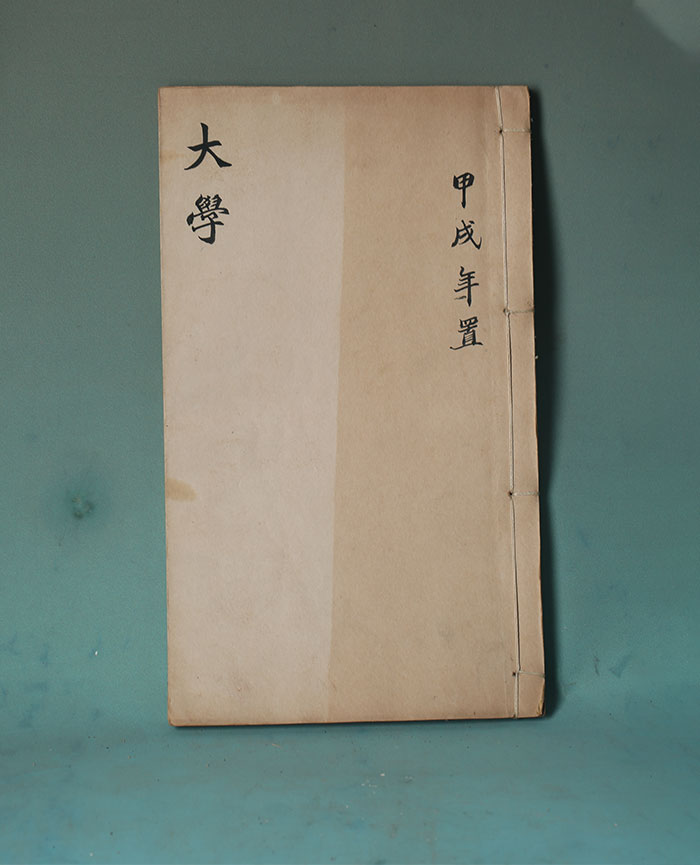 甲戌年置
大學